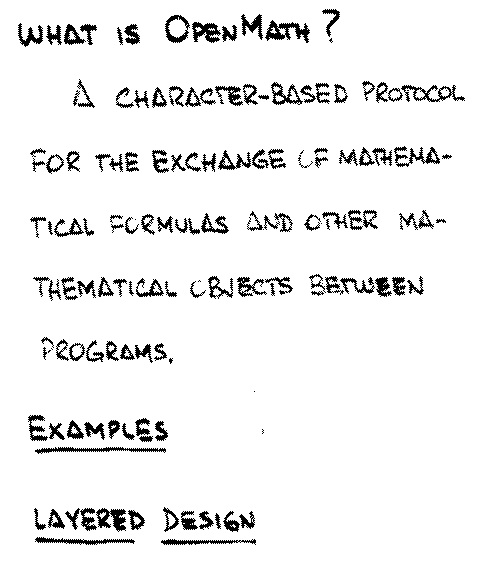 WHAT IS OPENMATH?
A CHARACTER-BASED PROTOCOL
FOR THE EXCHANGE OF MATHEMA-
TICAL FORMULAS AND OTHER MA-
THEMATICAL OBJECTS BETWEEN
PROGRAMS.
EXAMPLES
LAYERED DESIGN